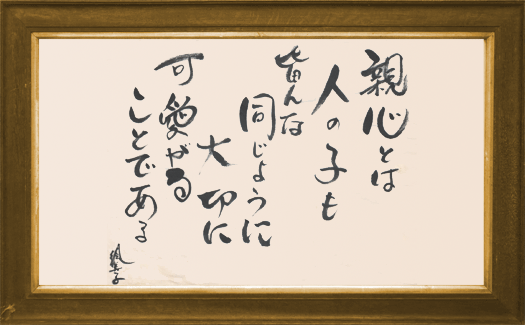 親心とは
人の子も
皆んな
同じように
大切に
可愛がる
ことである